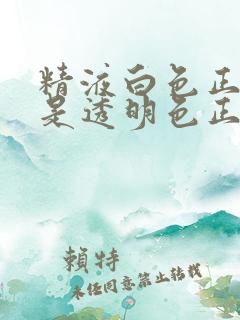 精液白色正
是透明色正
賴特
未经同意禁止转载